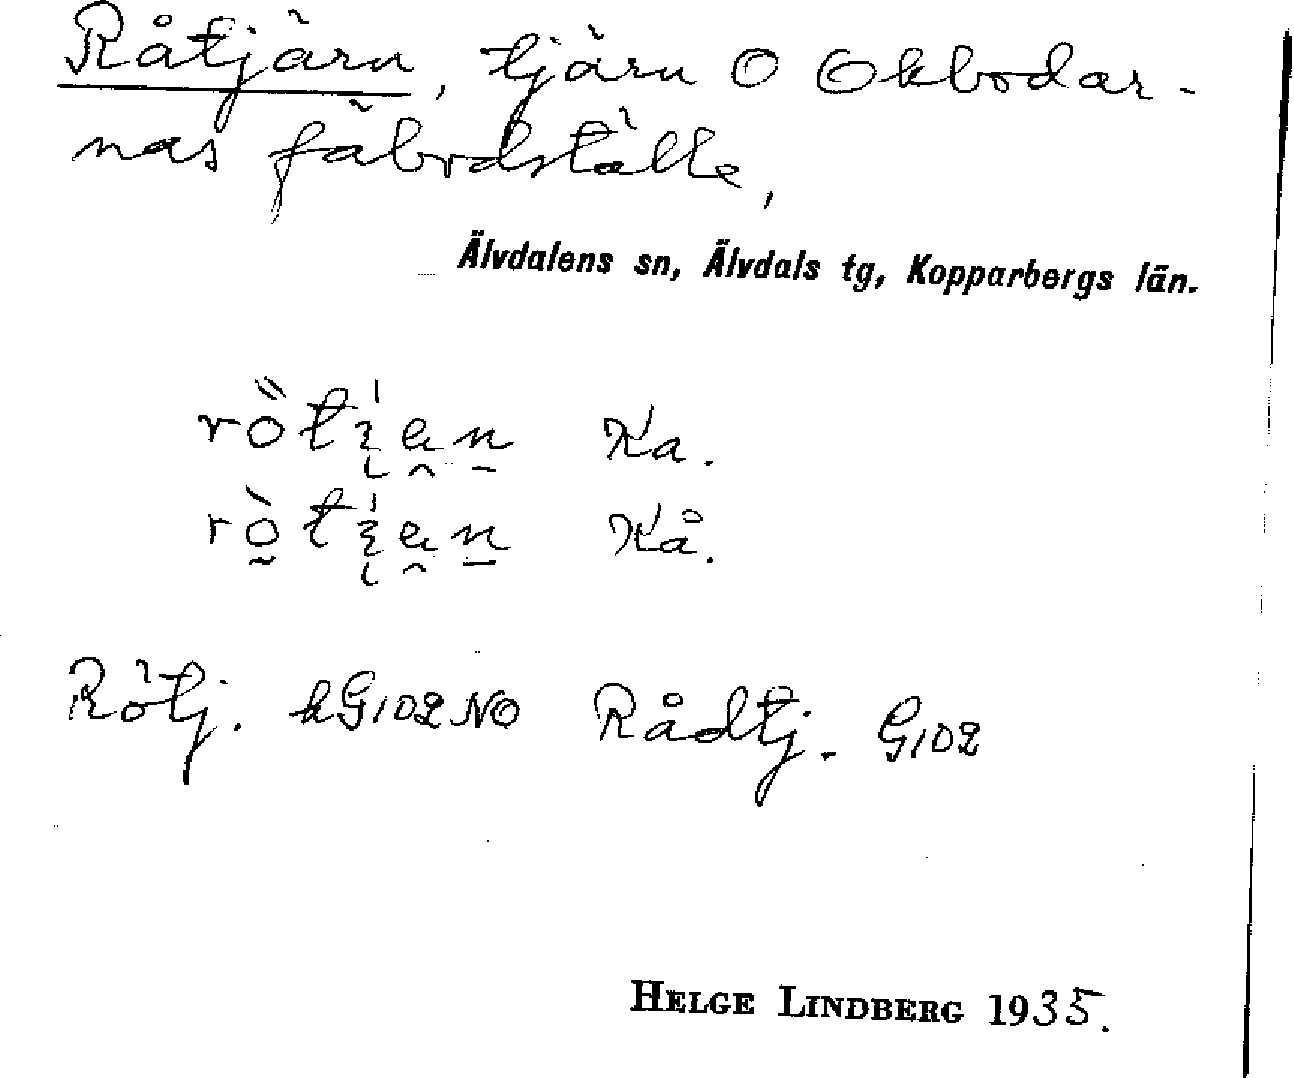 Råtjärn, tjärn O Okbodar-
nas fäbodställe,
Älvdalens sn, Älvdals tg, Kopparbergs län.
Ka.
Kå.
Rötj. kG102NO Rådtj. G102
HELGE LINDBERG 1935.